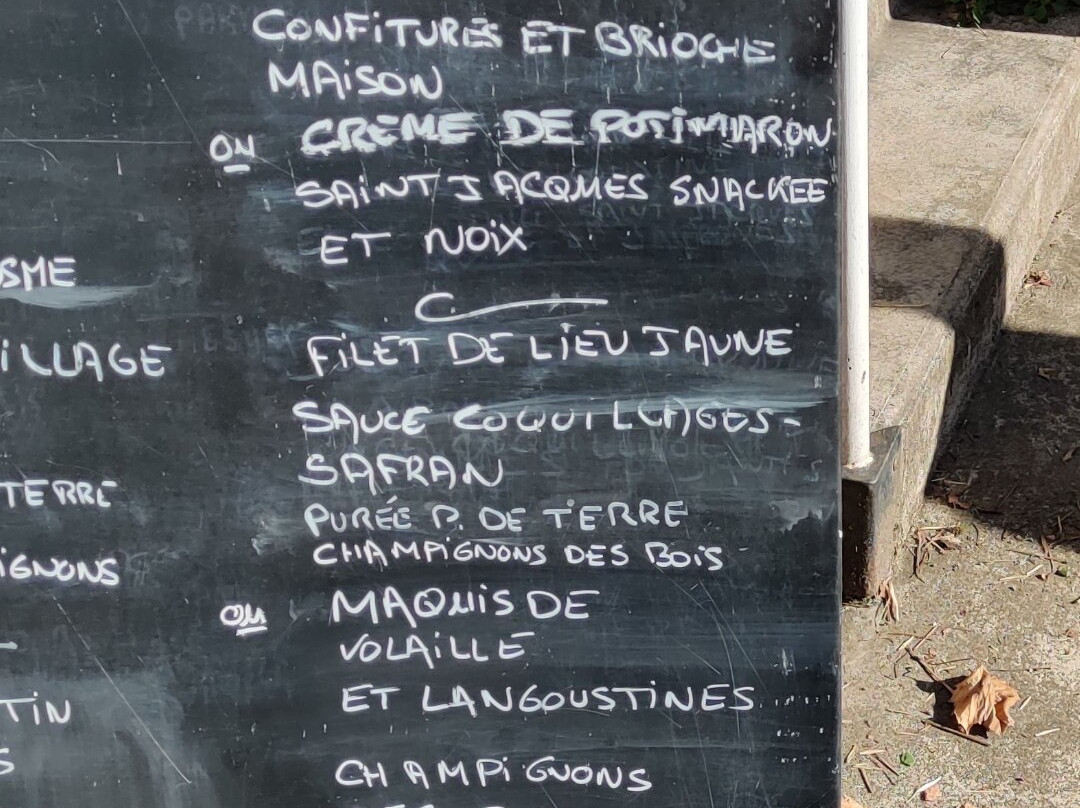 CONFITURES ET BRIOCHE
MAISON
OU CRÈME DE POTIMARON
SAINT JACQUES SNACKEE
ET NOIX
SME
FILET DE LIEU JAUNE
ILLAGE
SAUCE COQUILLAGES-
SAFRAN
TERRE
PURÉE P. DE TERRE
CHAMPIGNONS DES BOIS
IGNONS
OU MAQUIS DE
VOLAILLE
ET LANGOUSTINES
TIN
S
CHAMPIGNONS